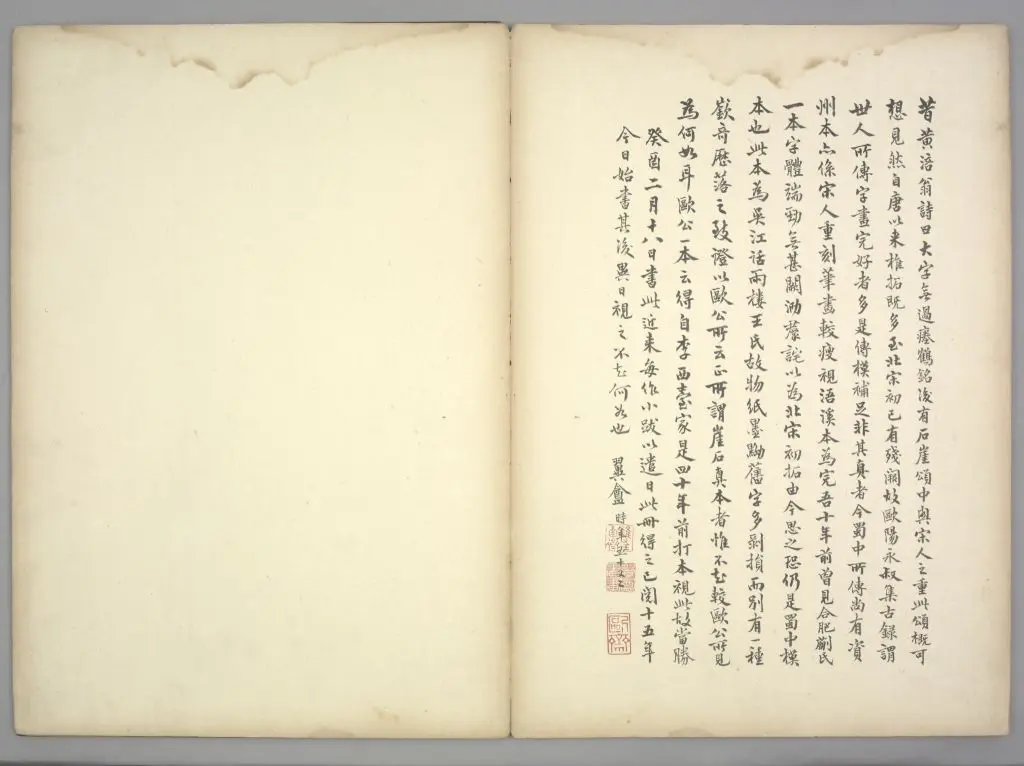 昔黄涪翁詩曰大字無過瘞鶴銘後有石崖頌中興宋人之重此頌概可
想見然自唐以来椎拓既多至北宋初已有殘闕故歐陽永叔集古録謂
世人所傳字畫完好者多是傳模補足非其真者今蜀中所傳尚有資
州本亦係宋人重刻筆畫較瘦視浯溪本為完吾十年前曽見合肥蒯氏
一本字體端勁無甚闕泐
詫以為北宋初拓由今思之恐仍是蜀中模
本也此本為吴江話雨樓王氏故物紙墨黝舊字多剥損而别有一種
嶔奇歷落之致證以歐公所云正所謂崖石真本者惟不知較歐公所見
為何如耳歐公一本云得自李西臺家是四十年前打本視此故當勝
癸酉二月十八日書此近来每作小跋以遣日此册得之已閲十五年
今日始書其後異日視之不知何如也 翼盦 時年五十又二